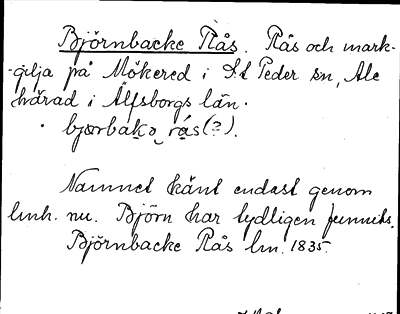 Björnbacke Rås. Rås och mark-
-gilja på Mökered i S:t Peder sn, Ale
härad i Älfsborgs län.
bjœrbakə rás (?).
Namnet känt endast genom
lmh. nu. Björn har tydligen funnits.
Björnbacke Rås lm. 1835.